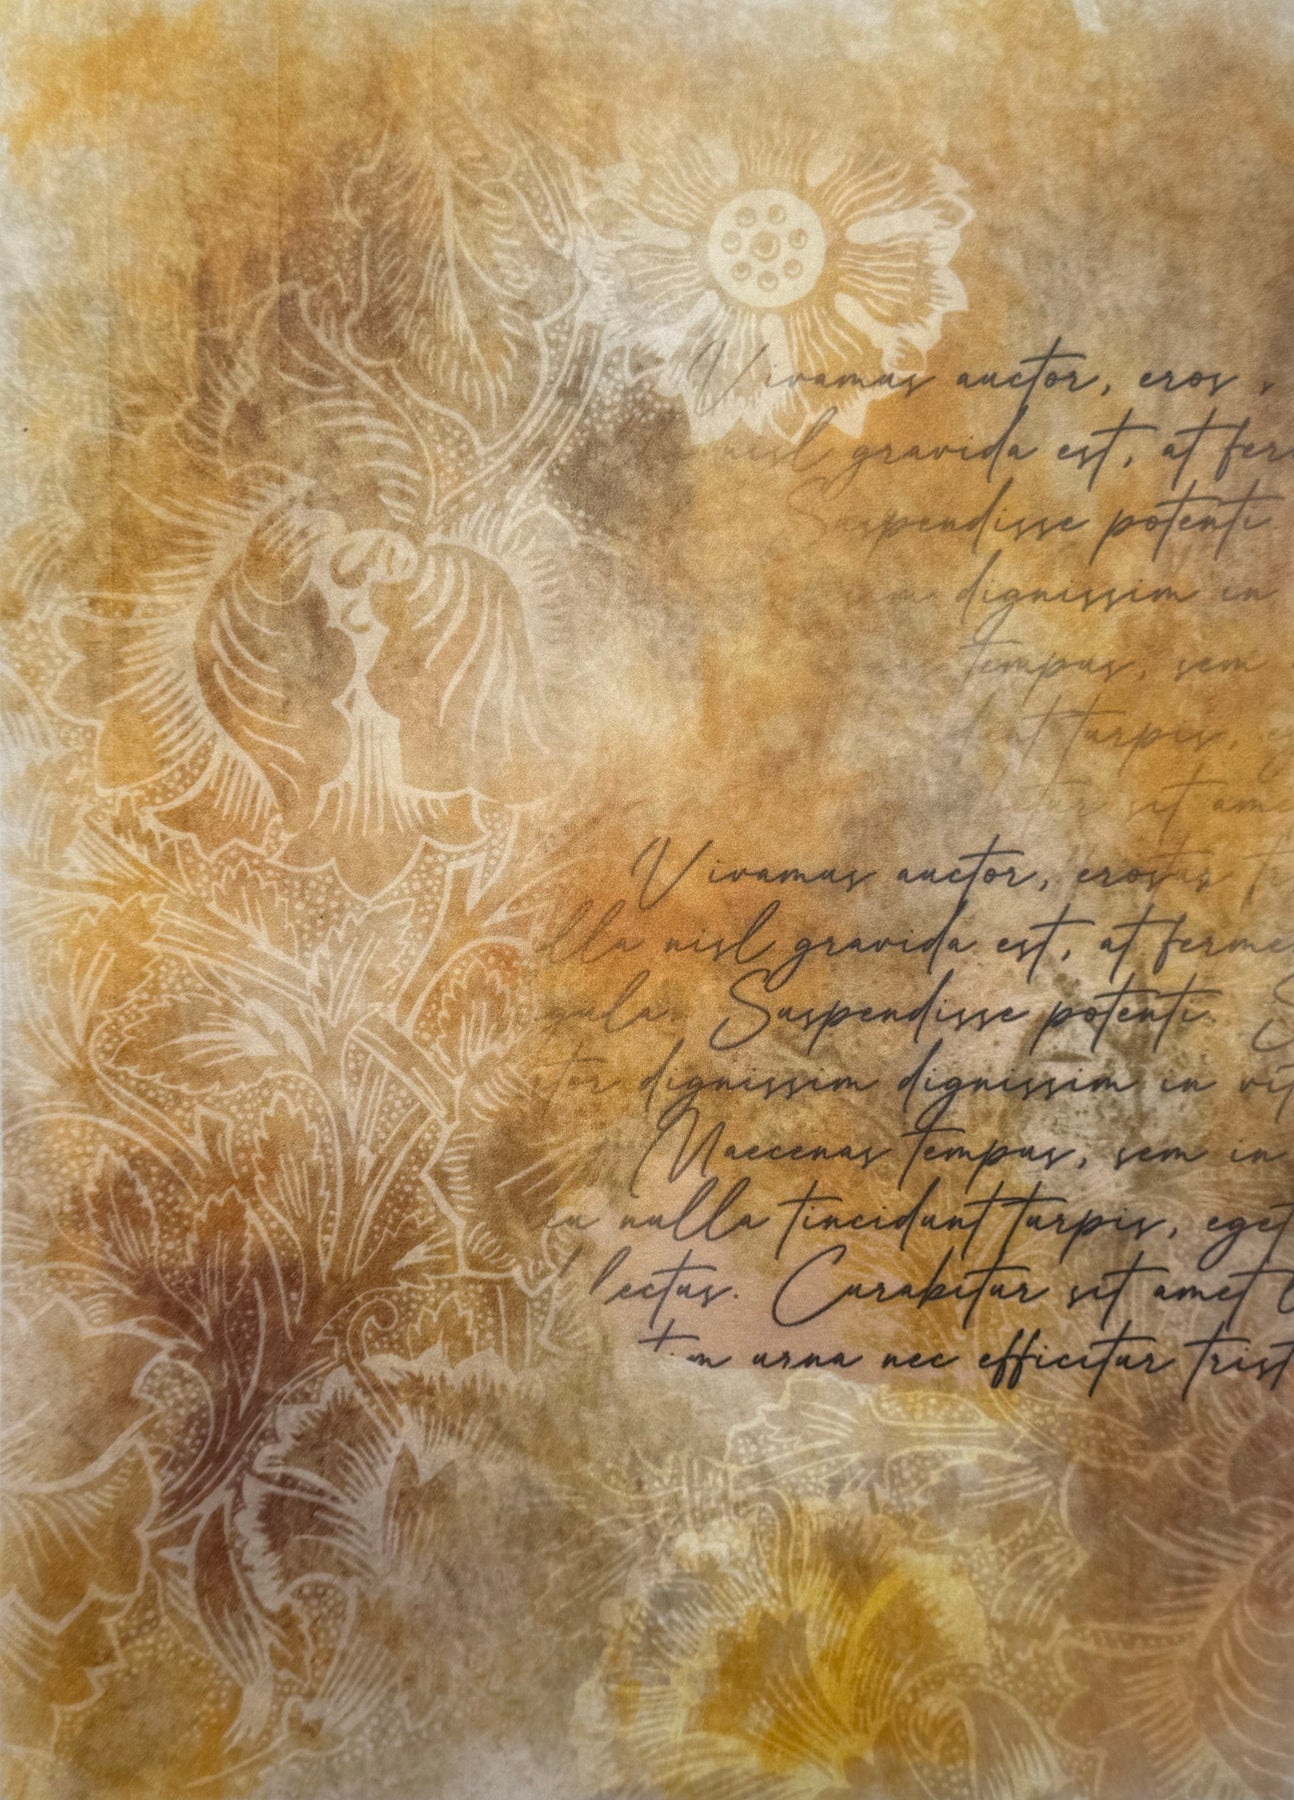 Vivamus auctor, eros
nisl gravida est, at fer
Suspendisse potenti.
sem dignissim in
tempus, sem
dunt turpis, eg
tur sit ame
Vivamus auctor, eros
lla nisl gravida est, at ferme
gula. Suspendisse potenti. S
tor dignissim dignissim in vit
Maecenas tempus, sem in
eu nulla tincidunt turpis, eget
lectus. Curabitur sit amet
urna nec efficitur trist